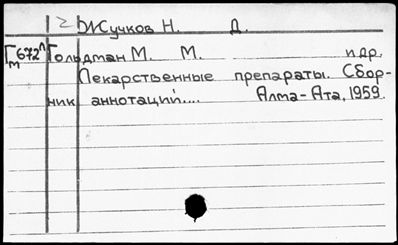 2 Жучков Н. Д.
Гм 672л Гольдман М. М. и др.
Лекарственные препараты. Сбор-
ник аннотаций.... Алма-Ата, 1959